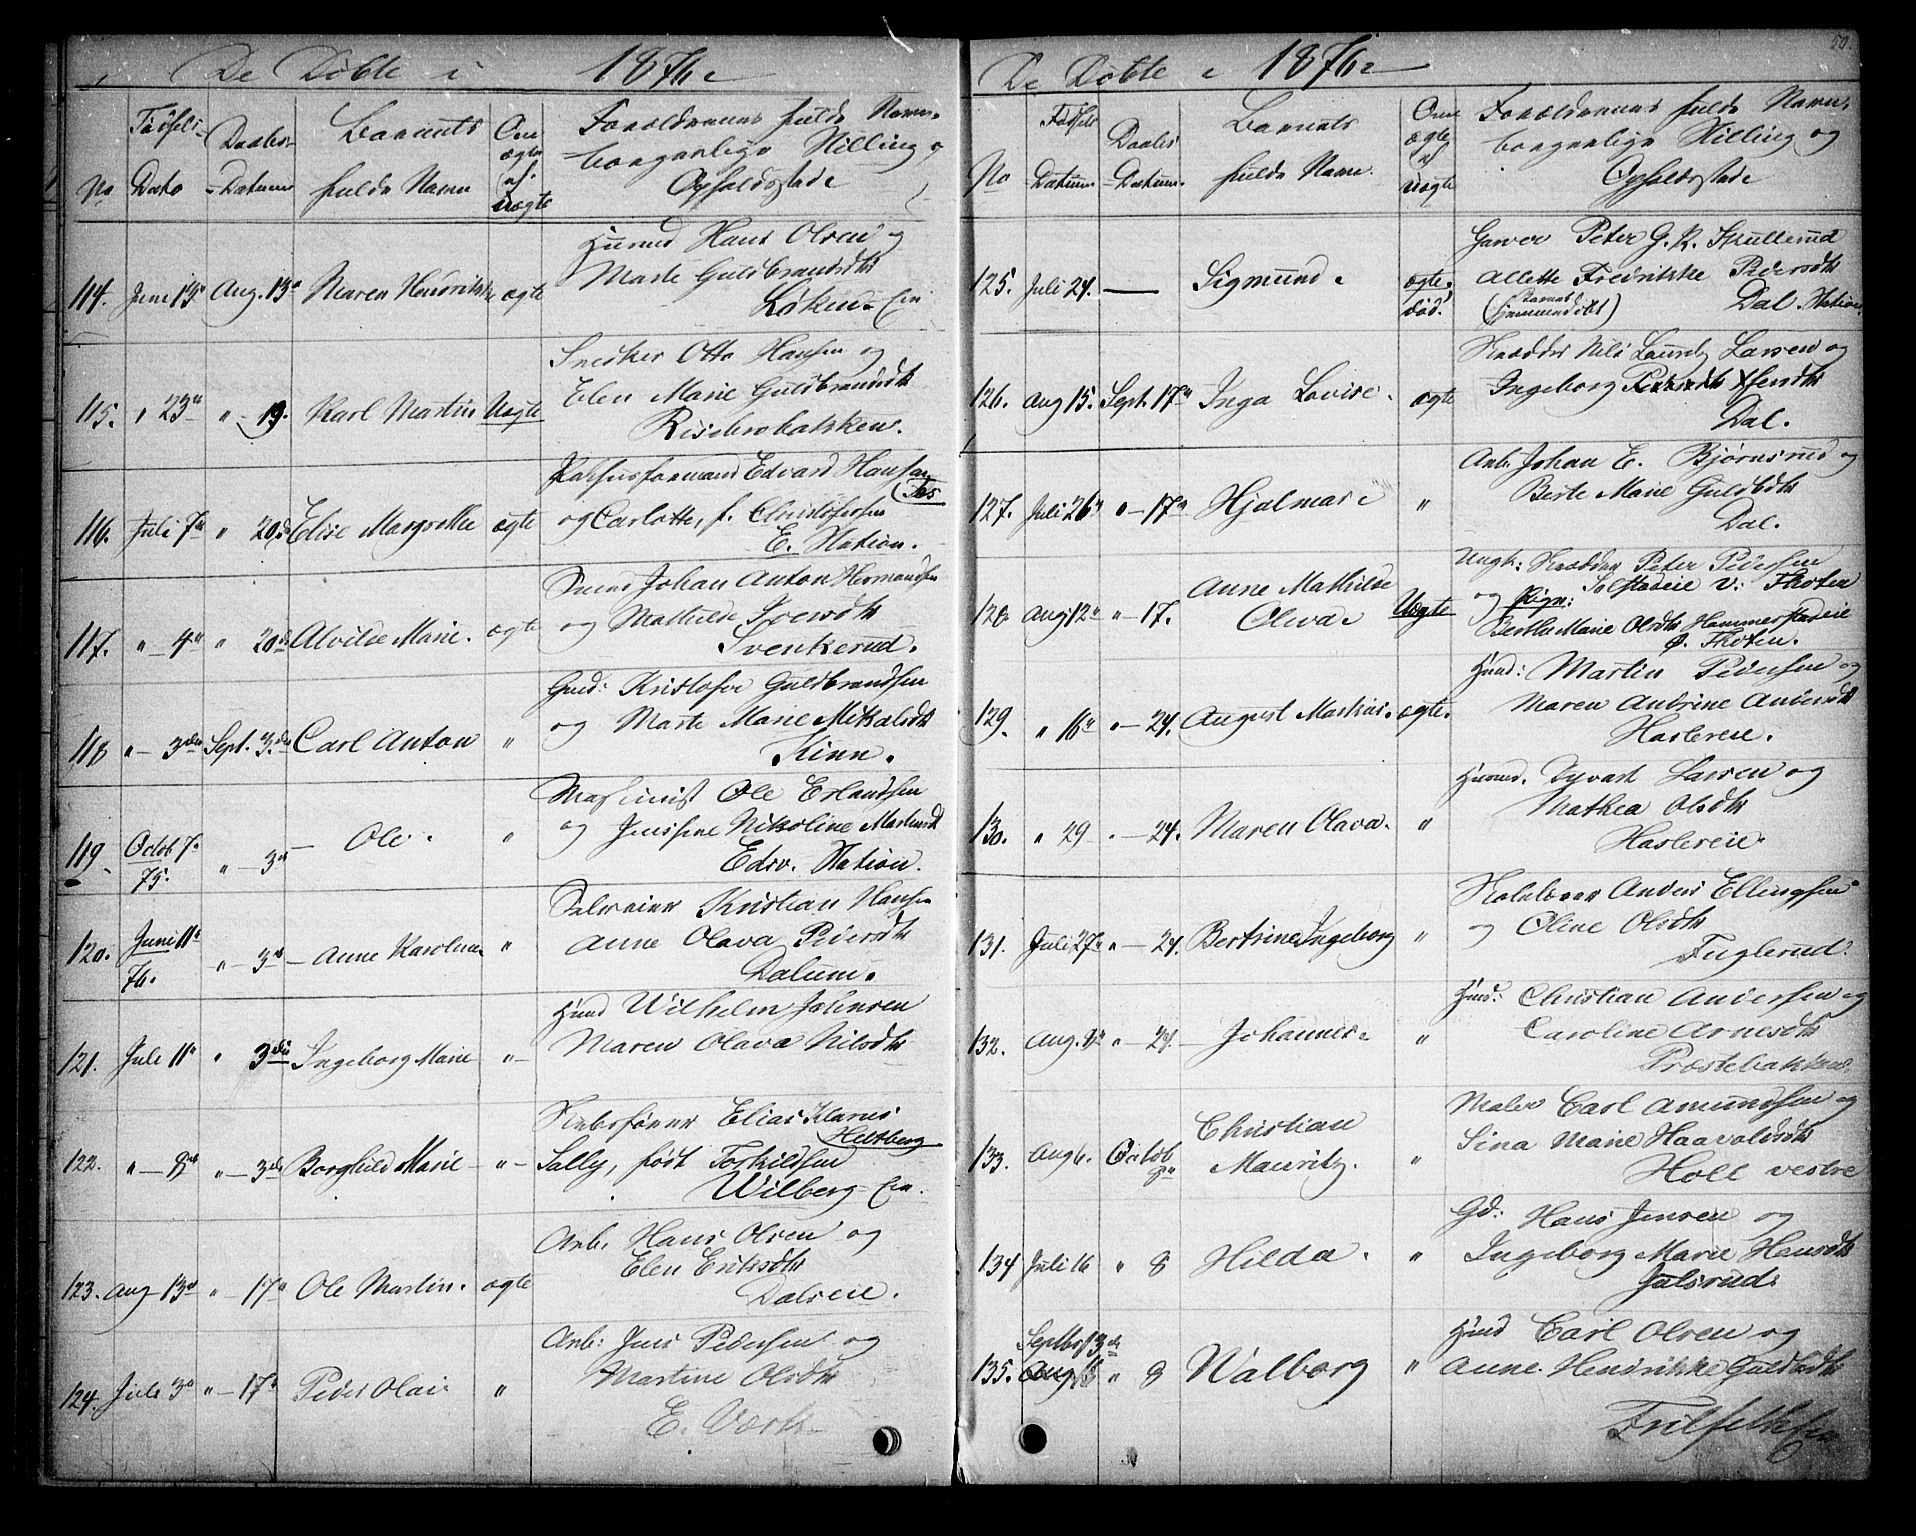 De Döbte i 1876.
No
Födsels-
Dato
Daabs-
Datum
Barnets
fulde Navn
Om
ægte
el.
uægte
Forældrenes fulde Navn,
borgerlige Stilling og
Opholdsstede
114. Juni 13 Aug. 13 Maren Hendrikke ægte
Husmd Hans Olsen og
Marte Guldbrandsdtr
Löken Eie
115. " 23 " - 19. Karl Martin Uægte
Snedker Otto Hansen og
Elen Marie Guldbrandsdtr
Risebrobakken.
116. Juli 7 " 20 Elise Margrethe ægte
Pakhusformand Edvard Hansen
og Carlotte, f. Christofersen
E. Station.
117. " - 4 " 20 Alvilde Marie. ægte
Smed Johan Anton Hermandsen
og Mathilde Iversdtr
Svenkerud.
118 " - 3 Sept. 3. Carl Anton "
Gmd: Kristofer Guldbrandsen
og Marte Marie Mikalsdtr
Kinn.
119. Octob 7. 75. " - 3 - Ole. "
Maskinist Ole Erlandsen
og Jensine Nikoline
Edsv. Station.
120. Juni 11 76. " - 3 - Anne Karoline "
Selveier Kristian Hansen
Anne Olava Pedersdtr
Dalum.
121. Juli 11 " 3 Ingeborg Marie "
Hmd Wilhelm Johnsen
Maren Olava Nilsdtr
122. " - 8 " - 3 Borghild Marie - " -
Elias Klarius
Hiltberg
Sally, født Torkildsen
Wilberg Eie.
123. Aug 13 " - 17 Ole Martin. ægte
Arb. Hans Olsen og
Elen Eriksdtr
Dalseie.
124. Juli 3 " - 17 Peder Olai "
Arb: Jens Pedersen og
Martine Olsdtr
E. Værk
De Döbte i 1876. 50.
No
Födsels
Datum
Daabs
Datum.
Barnets
fulde Navn.
Om
ægte
el
uægte
Forældrenes fulde Navn,
borgerlige Stilling og
Opholdsstede
125. Juli 24. — Sigmund. ægte. död.
Garver Peter G. R. Skullerud
Allette Fredrikke Pedersdtr
(Barnet hjemmedöbt) Dal. Station.
126. Aug 15. Sept. 17 Inga Lovise. ægte
Skrædder Nils Lauritz Larsen og
Ingeborg
Dal.
127. Juli 26 " - 17 Hjalmar "
Arb. Johan E. Björnsrud og
Berte Marie Guldbdtr
Dal.
128. Aug 12 " - 17. Anne Mathilde
Olava. Uægte
Ungk: Skrædder Peter Pedersen
og Pige: v. Thoten
Berthe Marie Olsdtr Hammerstadeie
Ø. Thoten.
129. " 16 " - 24. August Martius. ægte.
Husmd: Martin Pedersen og
Maren Andrine Andersdtr
Haslereie.
130. " 29 " - 24. Maren Olava. "
Husmd. Syvert Larsen og
Mathea Olsdtr
Haslereie.
131. Juli 27 " - 24. Bertrine Ingeborg "
Anders Ellingsen
og Oline Olsdtr
Fuglerud.
132. Aug. 8 " - 24. Johannes. "
Hmd: Christian Andersen og
Caroline Arnesdtr
Præstebakken.
133. Aug 6. Octob 8 Christian
Mauritz. "
Maler Carl Amundsen og
Sina Marie Haavoldsdtr
Holl vestre
134 Juli 16 " 8 Hilda. "
Gd: Hans Jensen og
Ingeborg Marie Hansdtr
Julsrud
Septbr 13
135. Aug " 8 Walborg "
Hmd Carl Olsen og
Anne Hendrikke Guldbdtr